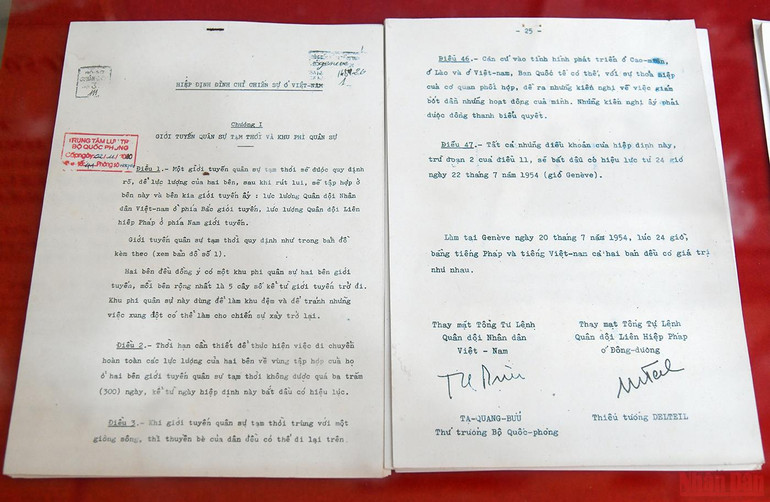 HIỆP ĐỊNH ĐÌNH CHỈ CHIẾN SỰ Ở VIỆT-NAM
Chương I
GIỚI TUYẾN QUÂN SỰ TẠM THỜI VÀ KHU PHI QUÂN SỰ
TRUNG TÂM LƯU TR
BỘ QUỐC PHÒNG
Điều 1.- Một giới tuyến quân sự tạm thời sẽ được quy định
rõ, để lực lượng của hai bên, sau khi rút lui, sẽ tập hợp ở
bên này và bên kia giới tuyến ấy : lực lượng Quân đội Nhân
dân Việt-nam ở phía Bắc giới tuyến, lực lượng Quân đội Liên
hiệp Pháp ở phía Nam giới tuyến.
Giới tuyến quân sự tạm thời quy định như trong bản đồ
kèm theo (xem bản đồ số 1).
Hai bên đều đồng ý có một khu phi quân sự hai bên giới
tuyến, mỗi bên rộng nhất là 5 cây số kể từ giới tuyến trở đi.
Khu phi quân sự này dùng để làm khu đệm và để tránh những
việc xung đột có thể làm cho chiến sự xảy trở lại.
Điều 2.- Thời hạn cần thiết để thực hiện việc di chuyển
hoàn toàn các lực lượng của hai bên về vùng tập hợp của họ
ở hai bên giới tuyến quân sự tạm thời không được quá ba trăm
(300) ngày, kể từ ngày hiệp định này bắt đầu có hiệu lực.
Điều 3.- Khi giới tuyến quân sự tạm thời trùng với một
giòng sông, thì thuyền bè của dân đều có thể đi lại trên
- 25 -
Điều 46.- Căn cứ vào tình hình phát triển ở Cao-mên,
ở Lào và ở Việt-nam, Ban Quốc tế có thể, với sự thoả hiệp
của cơ quan phối hợp, đề ra những kiến nghị về việc giảm
bớt dần những hoạt động của mình. Những kiến nghị ấy phải
được đồng thanh biểu quyết.
Điều 47.- Tất cả những điều khoản của hiệp định này,
trừ đoạn 2 của điều 11, sẽ bắt đầu có hiệu lực từ 24 giờ
ngày 22 tháng 7 năm 1954 (giờ Genève).
Làm tại Genève ngày 20 tháng 7 năm 1954, lúc 24 giờ,
bằng tiếng Pháp và tiếng Việt-nam cả hai bản đều có giá trị
như nhau.
Thay mặt Tổng Tư Lệnh
Quân đội Nhân dân
Việt - Nam
Thay mặt Tổng Tư Lệnh
Quân đội Liên Hiệp Pháp
ở Đông-dương
TẠ-QUANG-BỬU
Thứ trưởng Bộ Quốc-phòng
Thiếu tướng DELTEIL
Nhân Dân